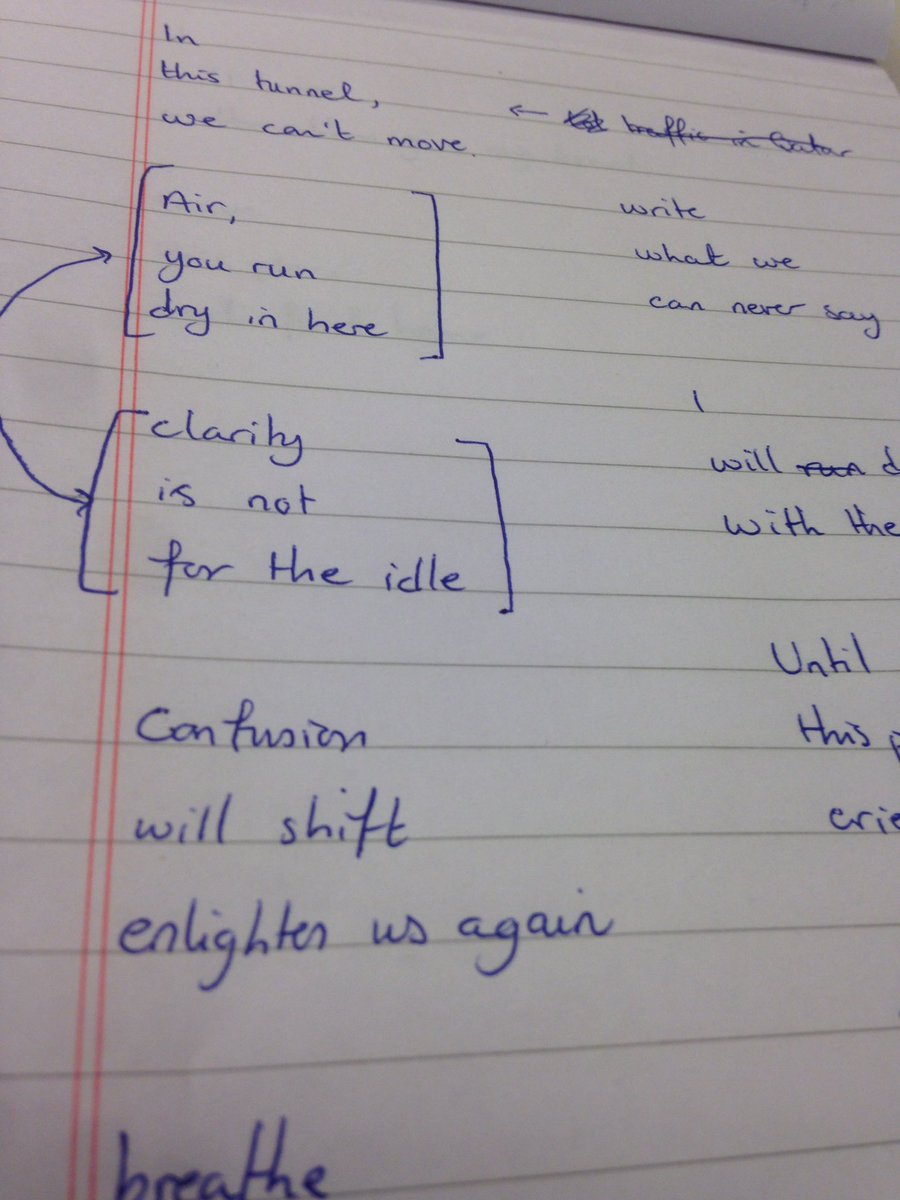 In
this tunnel,
we can't move.
← traffic in Qatar
Air,
you run
dry in here
clarity
is not
for the idle
Confusion
will shift
enlighten us again
breathe
write
what we
can never say
I
will run d
with the
Until
this p
crie